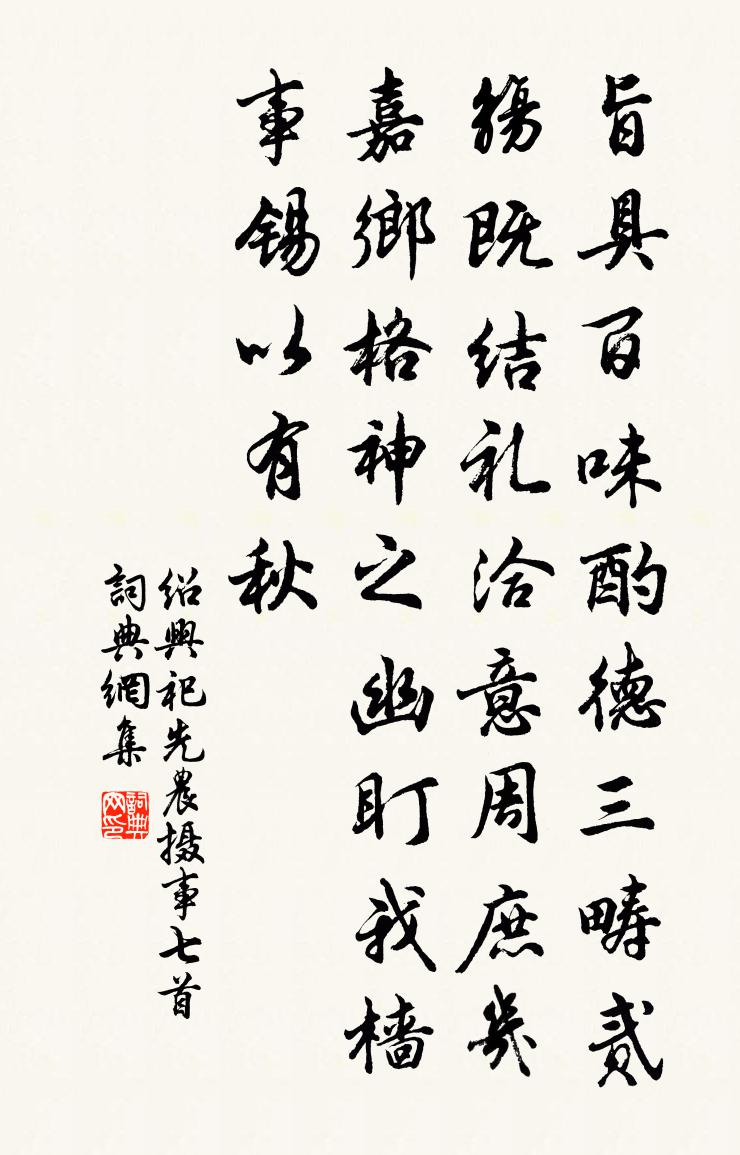 旨具百味酌德三畴貳
觴既结礼洽意周庶幾
嘉鄉格神之幽盯我檣
事錫以有秋
绍興祀先農摄事七首
詞典網集
詞典网印